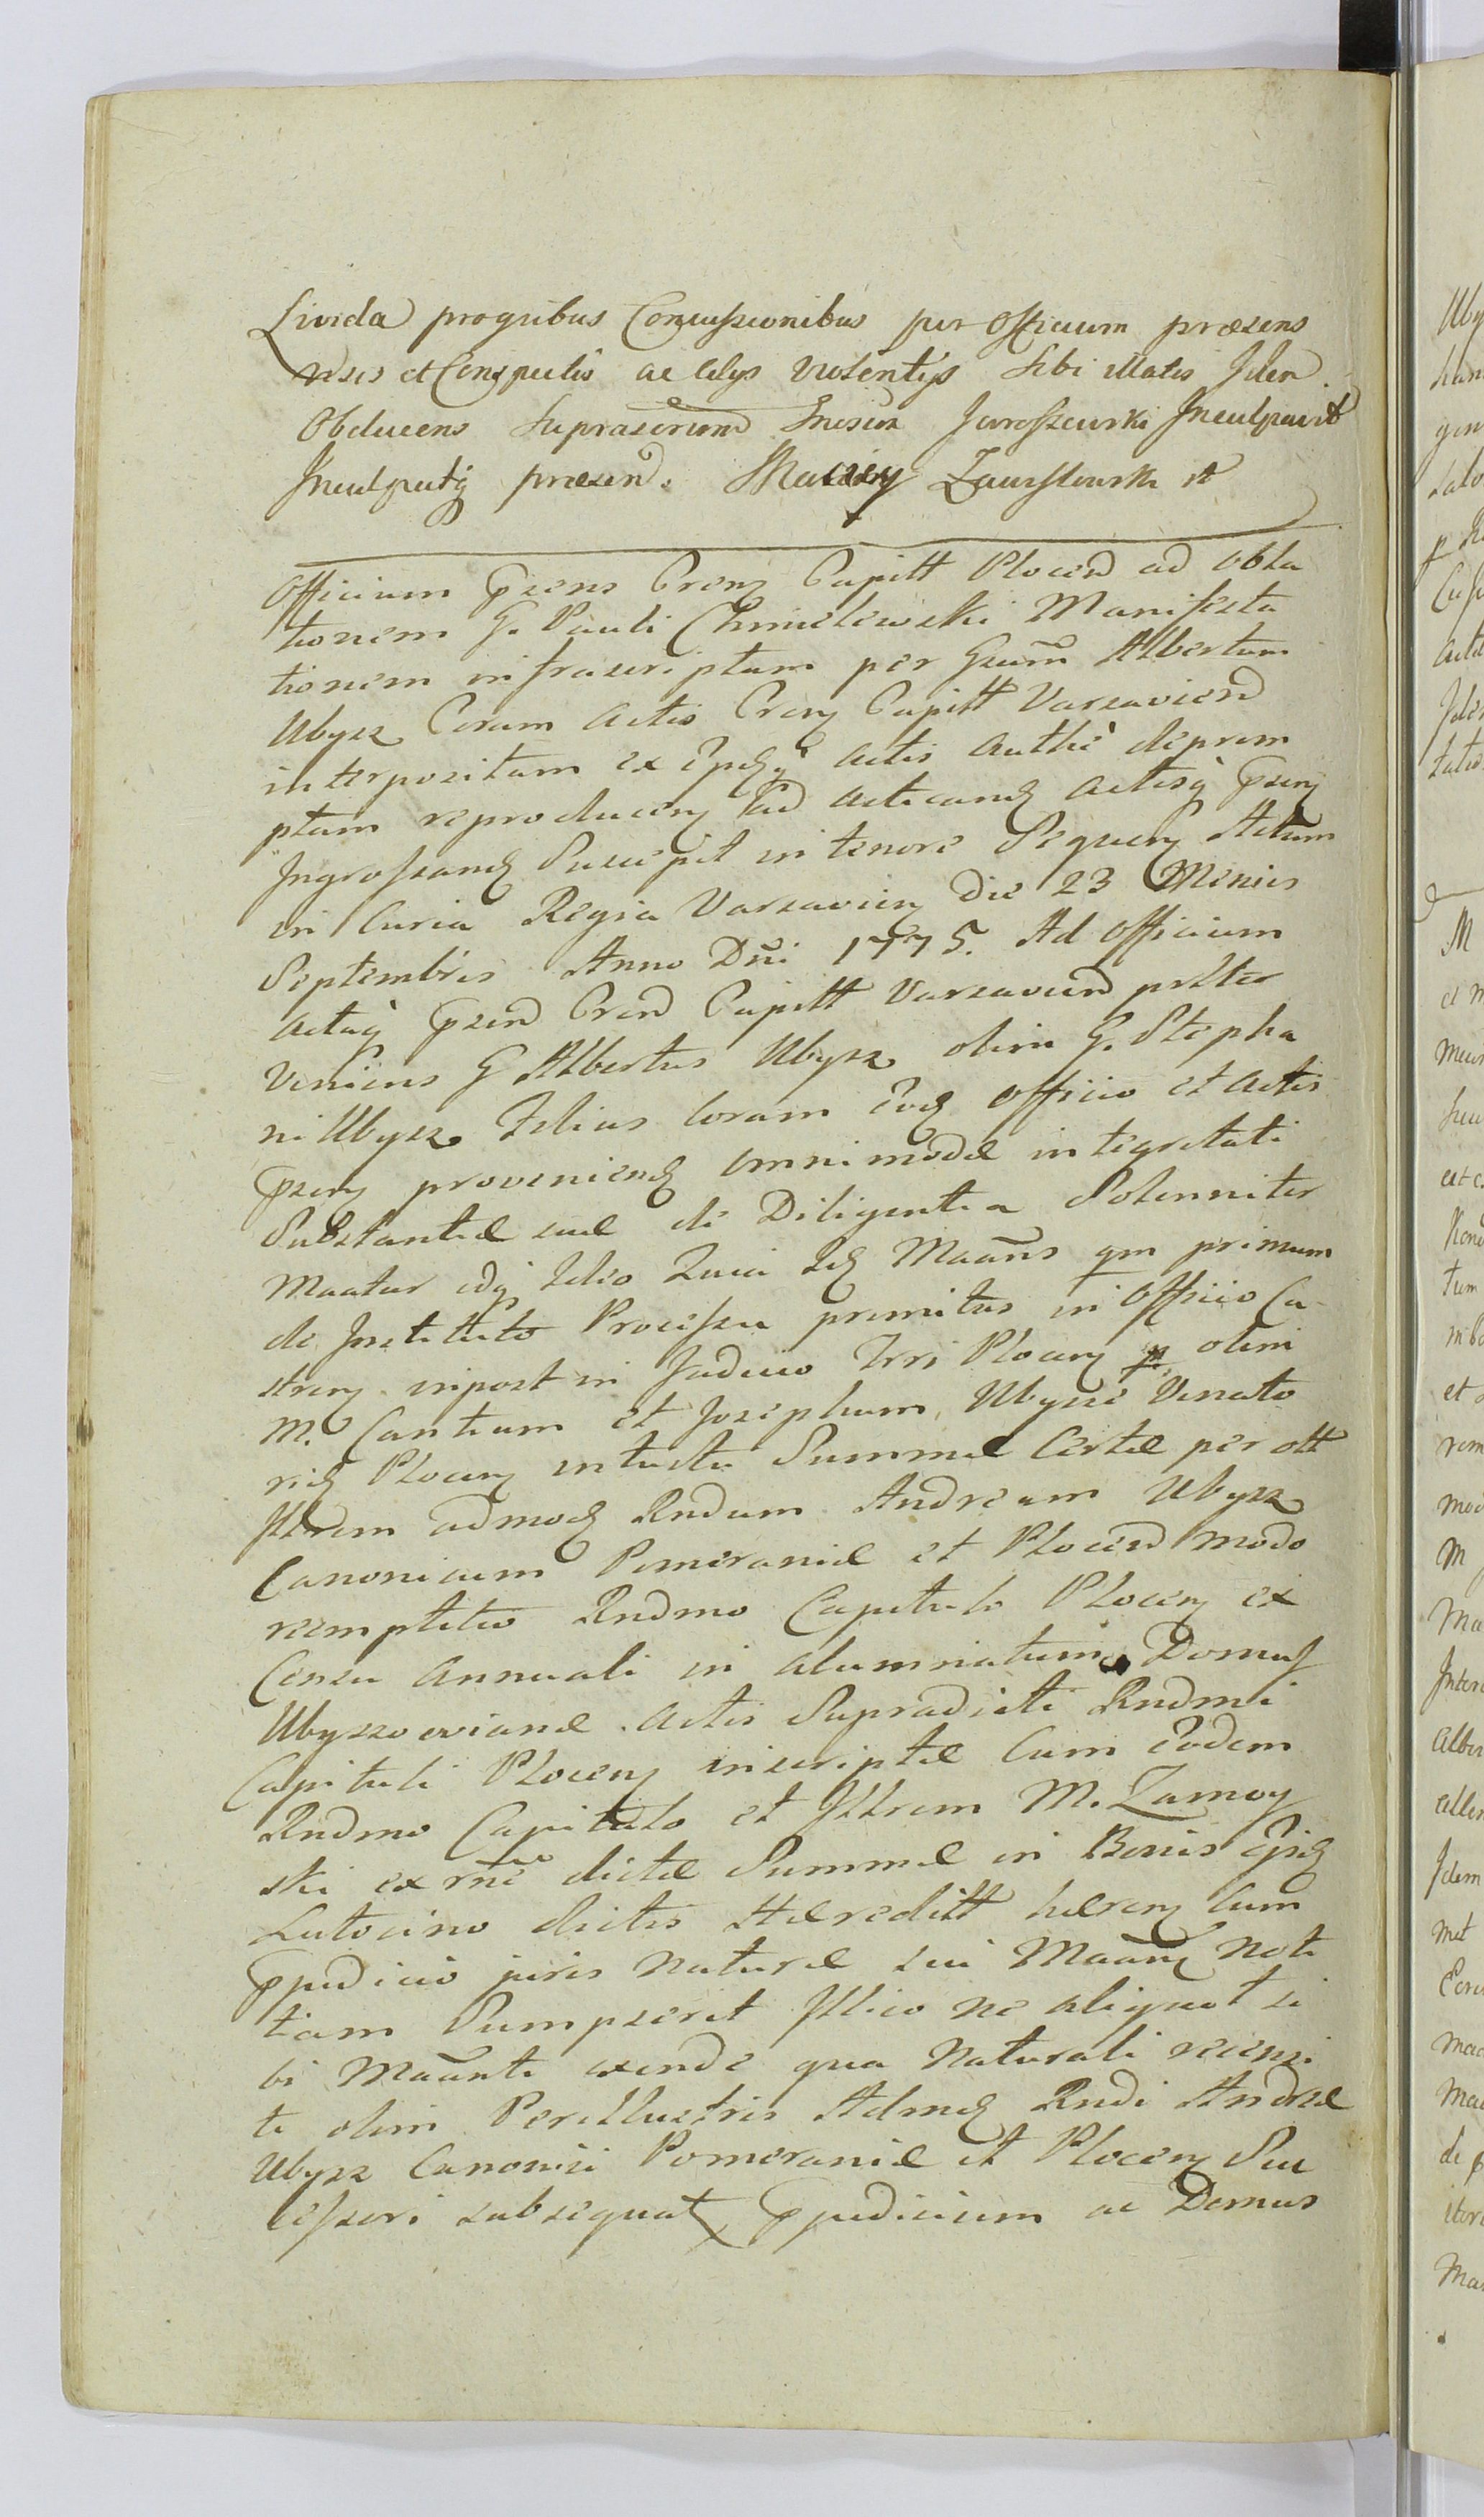 Livida progribus Concussionibus per officium præsens
visis et Conspectis ac alys violentys sibi illatis Iden
Obducens Supraserum Jaroszewski Inculpavit
Inculpatq præsend. Maciey Zawislowski
Officium Pnzens Crens Capitt Plocend ad obla
tionem G. Pauli Chmielewski Manifesta
tionem infrascriptam per Gsum Albertum
Ubysz Coram actis Crens Capitt Varsaviend
interpositam ex actis authe deprom
ptam reproducens ad acticand actisq pzens
Ingrossand Suscepit in tenore Sequens Actum
in Curia Regia Varsavien Die 23 Mensis
Septembris Anno Dni 1775. Ad officium
actaq pzend Crend Capitt Varsaviend prlter
veniens G Albertus Ubysz olim G. Stepha
ni Ubysz Filius Coram eod officio et actis
pzens proveniend omnimodæ integritati
Substantiæ suæ de Diligentia Solenniter
Maatur idq Ideo Quia Id Maans qm primum
de Instituto Processu primitus in officio Ca-
stren inpost in Iudicio Trri Plocen p olim
M. Cantium et Josephum Ubysze Venato
rid Plocen intuitu Summæ Certæ per ott
Illrem admod Rndum Andream Ubysz
Canonicum Pomeraniæ et Plocend modo
reemptitio Rndmo Capitulo Plocen ex
Censu annuali in alumniatum Domus
Ubyszevianæ actis Supradicti Rndmi
Capituli Plocen inscriptæ Cum Eodem
Rndmo Capitulo et Illrem M. Zamoy
ski ex rne dictæ Summæ in Bonis
Lutocino dictis Hæreditt hæren Cum
Ppudicio juris naturæ sui Maan noti
tiam Sumpserit Illico ne aliquot si
bi Maanti exinde qua naturali recensi
ti olim Perillustris Admd Rndi Andreæ
Ubysz Canonici Pomeraniæ et Plocen Suc
cessori subsequat Ppudicium ac Domus